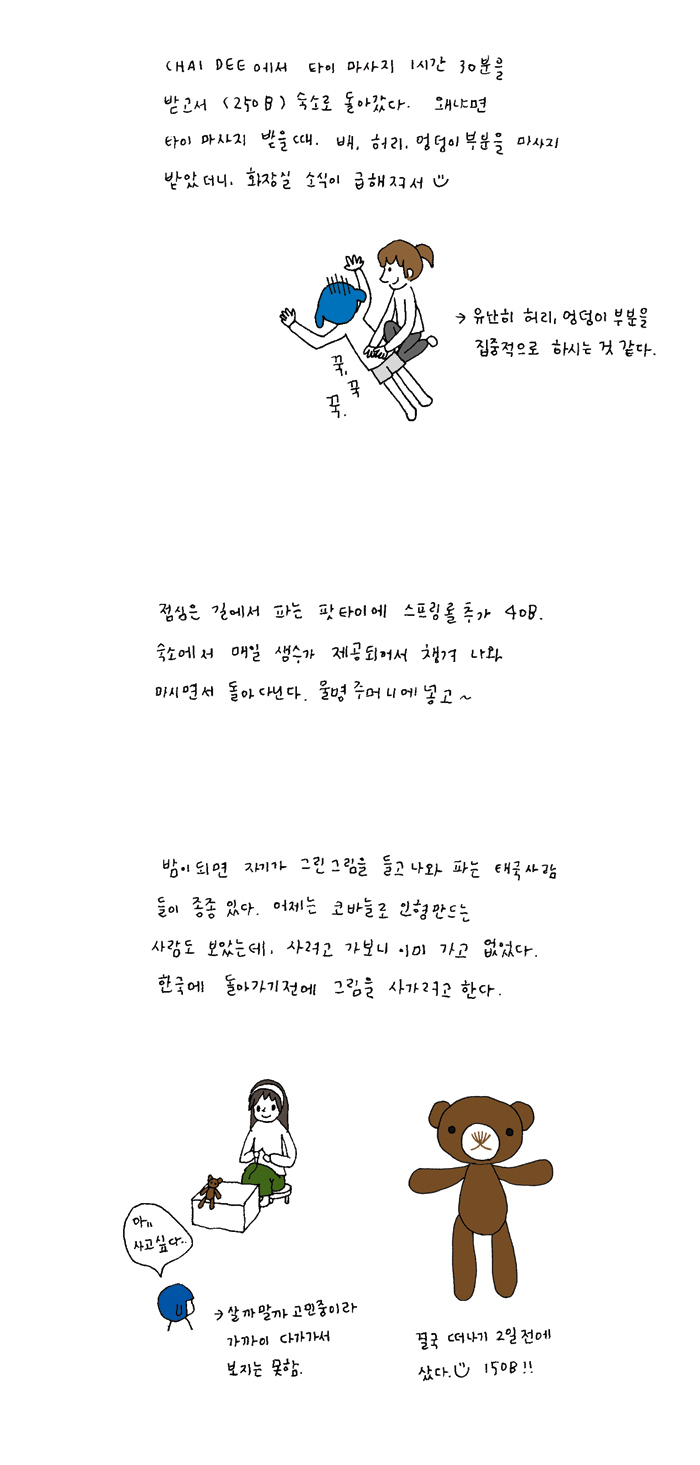 CHAI DEE에서 타이 마사지 1시간 30분을
받고서 (250B) 숙소로 돌아갔다. 왜냐면
타이 마사지 받을 때. 배, 허리, 엉덩이 부분을 마사지
받았더니, 화장실 소식이 급해져서
→ 유난히 허리, 엉덩이 부분을
집중적으로 하시는 것 같다.
꾹,
꾹
꾹.
점심은 길에서 파는 팟타이에 스프링롤 추가 40B.
숙소에서 매일 생수가 제공되어서 챙겨 나와
마시면서 돌아다닌다. 물병 주머니에 넣고~
밤이 되면 자기가 그린 그림을 들고 나와 파는 태국사람
들이 종종 있다. 어제는 코바늘로 인형만드는
사람도 보았는데, 사려고 가보니 이미 가고 없었다.
한국에 돌아가기전에 그림을 사가려고 한다.
아..
사고싶다..
→ 살까말까 고민중이라
가까이 다가가서
보지는 못함.
결국 떠나기 2일 전에
샀다. 150B!!